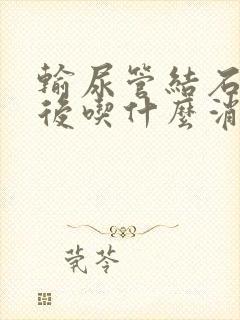 輸尿管結石
後喫什麼消
莞苓